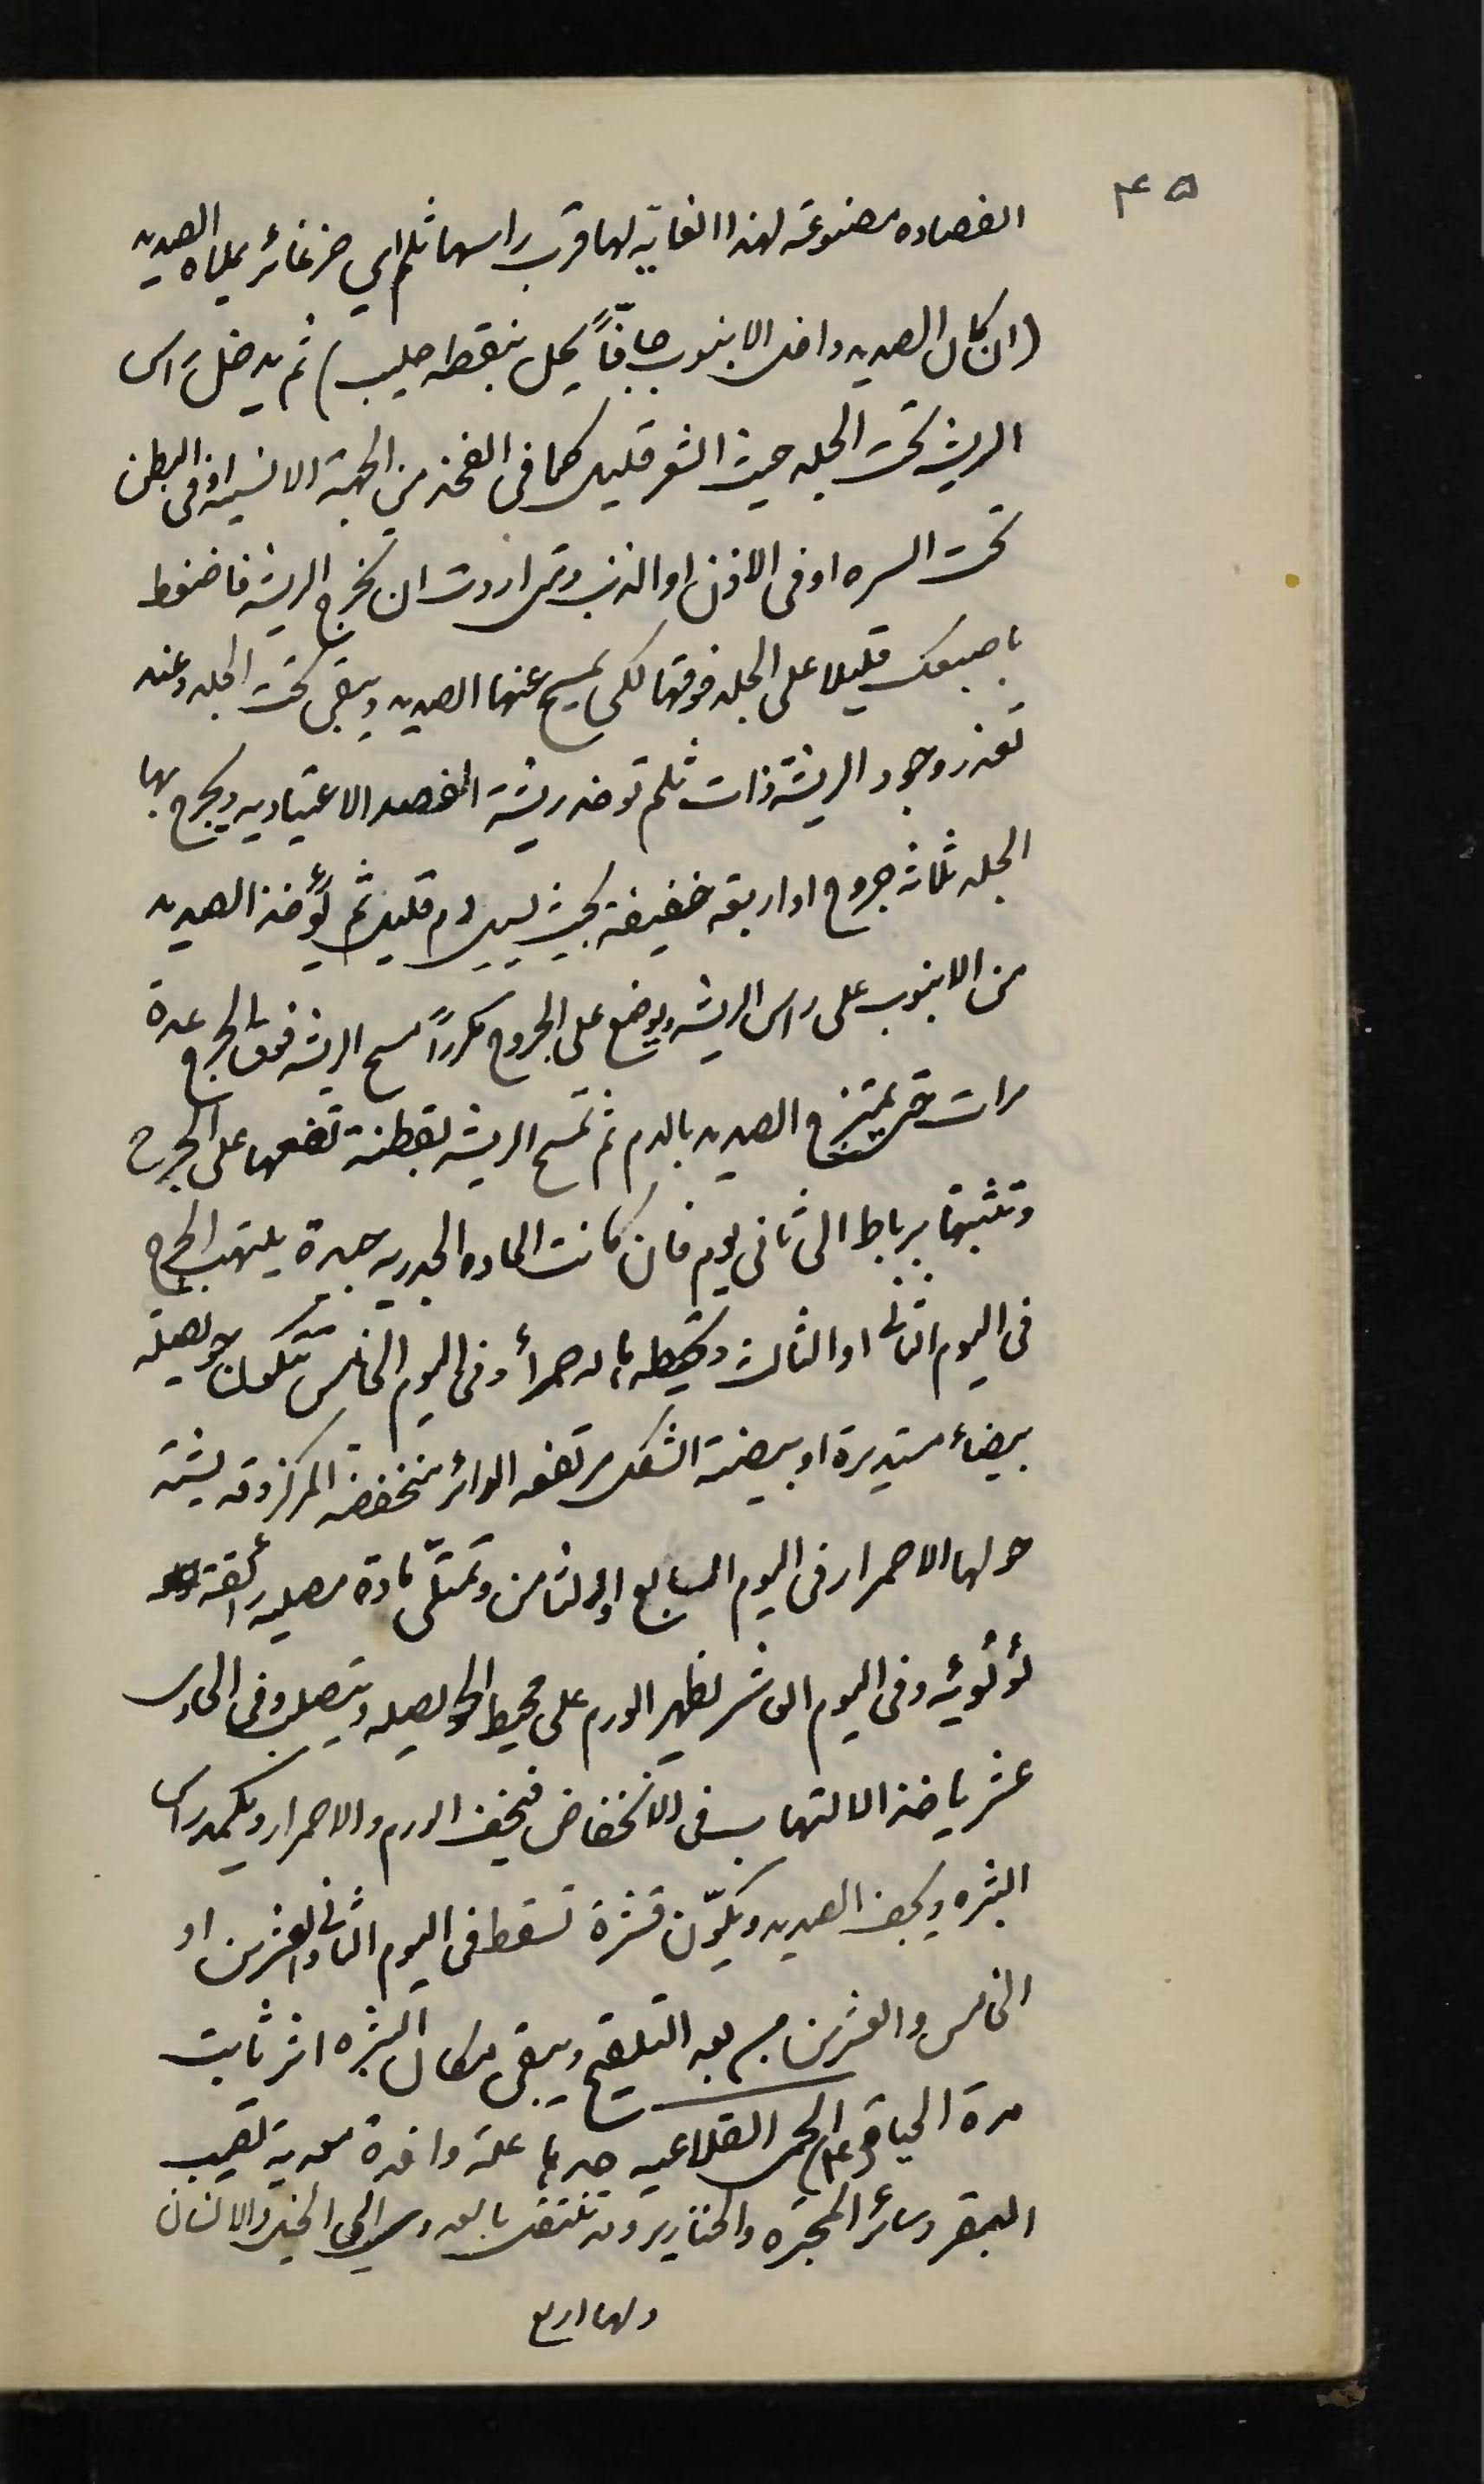 ٤٥
الفصاده مصنوعة لهذا الغايه لها قرب راسها ثلم اي حز غائر يملاه الصديد
(ان كان الصديد داخل الانبوب جافّاً يحل بنقطه حليب) ثم يدخل راس
الريشه تحت الجلد حيث الشعر قليل كما في الفخذ من الجهة الانسيه او في البطن
تحت السره او في الاذن او الذنب ومتى اردت ان تخرج الريشه فاضغط
باصبعك قليلا على الجلد فوقها لكي يمسح عنها الصديد ويبقى تحت الجلد وعند
تعذر وجود الريشة ذات ثلم توخذ ريشة الفصد الاعتياديه ويجرح بها
الجلد ثلاثه جروح او اربعه خفيفة بحيث يسيل دم قليل ثم يُؤخذ الصديد
من الانبوب على راس الريشه ويوضع على الجروح مكرراً مسح الريشه فوق الجرح عدة
مرات حتى يمتزج الصديد بالدم ثم تمسح الريشه بقطنة تضعها على الجرح
وتثبتها برباط الى ثاني يوم فان كانت الماده الجدريه جيدة يلتهب الجرح
في اليوم الثاني او الثالث وتحيطه هاله حمرأ وفي اليوم الخامس تتكون حويصلة
بيضاء مستديرة او بيضية الشكل مرتفعه الدائر منخفضة المركز وقد يشتد
حولها الاحمرار في اليوم السابع او الثامن وتمتلّى مادة مصلية رائقة
لؤلوئيه وفي اليوم العاشر يظهر الورم على محيط الحويصله ويتصلب وفي الحادي
عشر ياخذ الالتهاب في الانخفاض فيخف الورم والاحمرار ويكمد راس
البثره ويجف الصديد ويكوّن قشرة تسقط في اليوم الثاني والعشرين او
الخامس والعشرين من بعد التلقيح ويبقى مكان البثره اثر ثابت
مدة الحياة (٤) الحمى القلاعيه حدها علة وافدة معدية تصيب
البقر وسائر المجتره والخنازير وقد تنتقل بالعدوى الى الخيل والانسان
ولها اربع